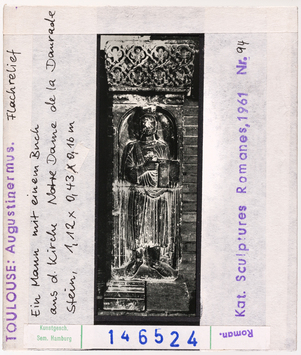 TOULOUSE: Augustinermus.
Flachrelief
Ein Mann mit einem Buch
aus d. Kirche Notre Dame de la Daurade
Stein, 1,12 x 0,43 x 0,16 m
Kat. Sculptures Romanes, 1961 Nr. 94
Kunstgesch.
Sem. Hamburg
146524
Roman.